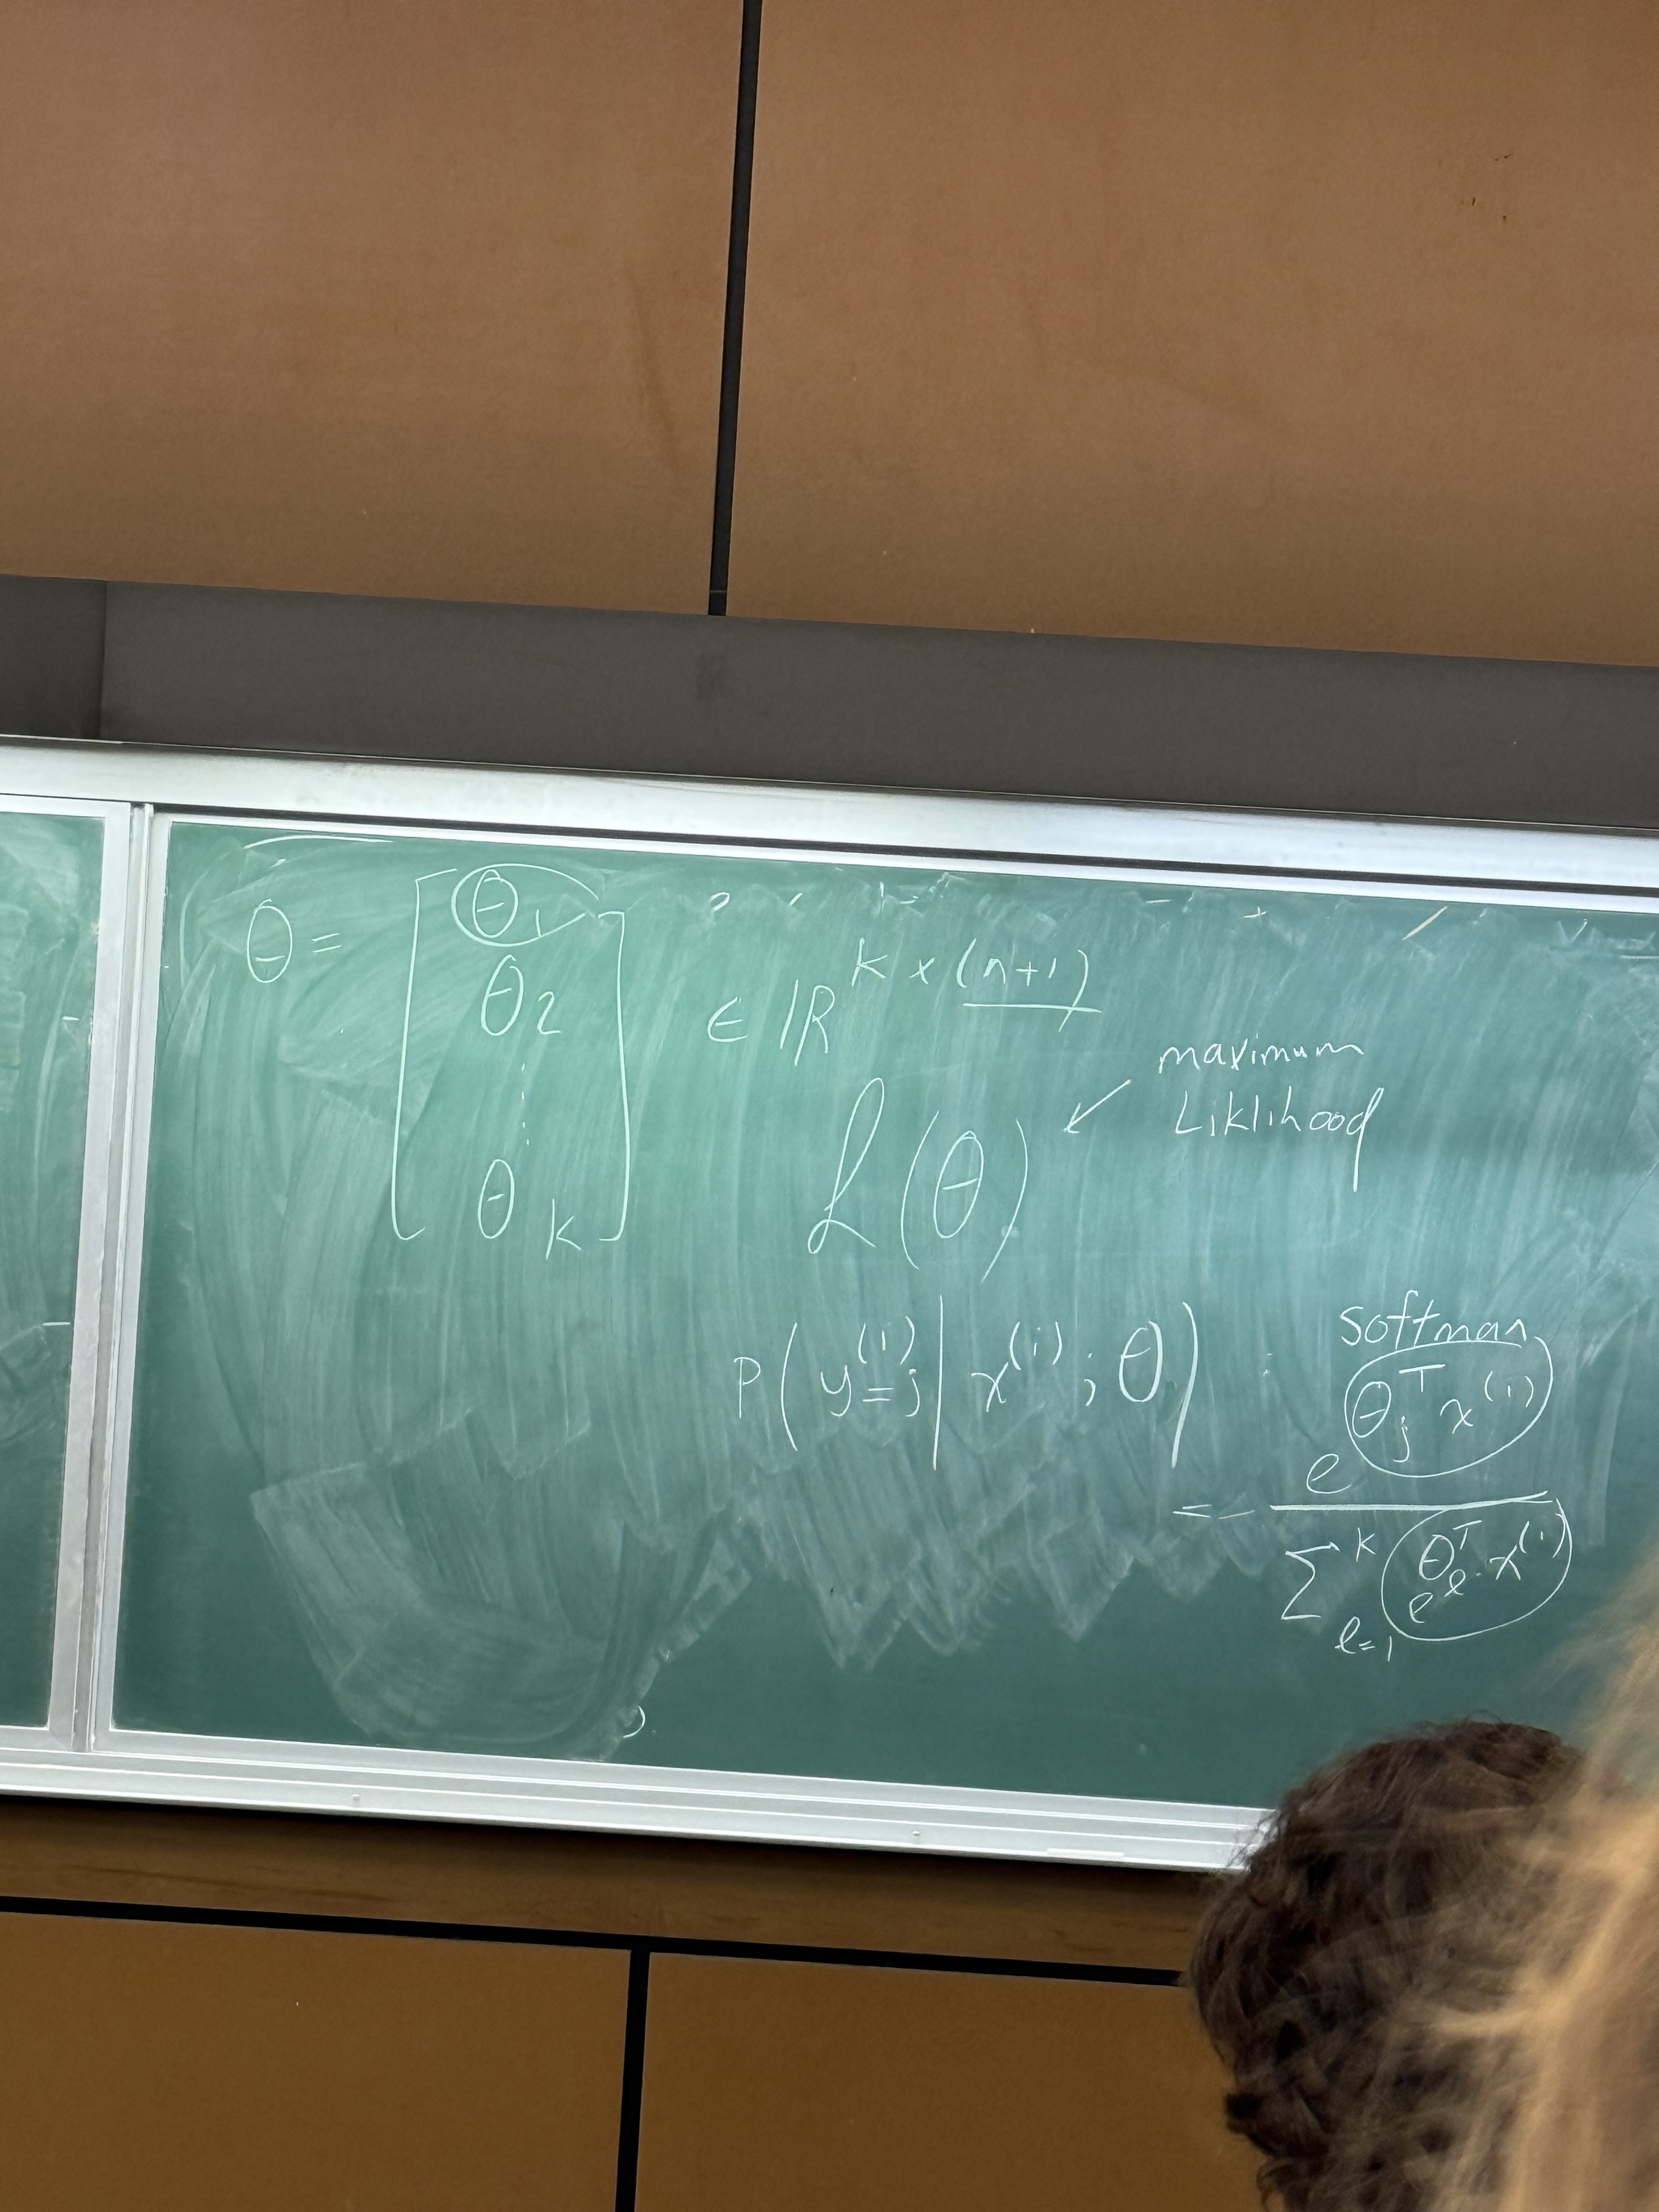 θ = [ θ₁ θ₂ ⋮ θ_K ] ∈ ℝ^{K × (n+1)}
maximum
Liklihood
ℒ(θ) ↙
softmax
P( y^{(i)} = j | x^{(i)} ; θ ) = e^{θ_j^T x^{(i)}} / Σ_{ℓ=1}^{K} e^{θ_ℓ^T · x^{(i)}}